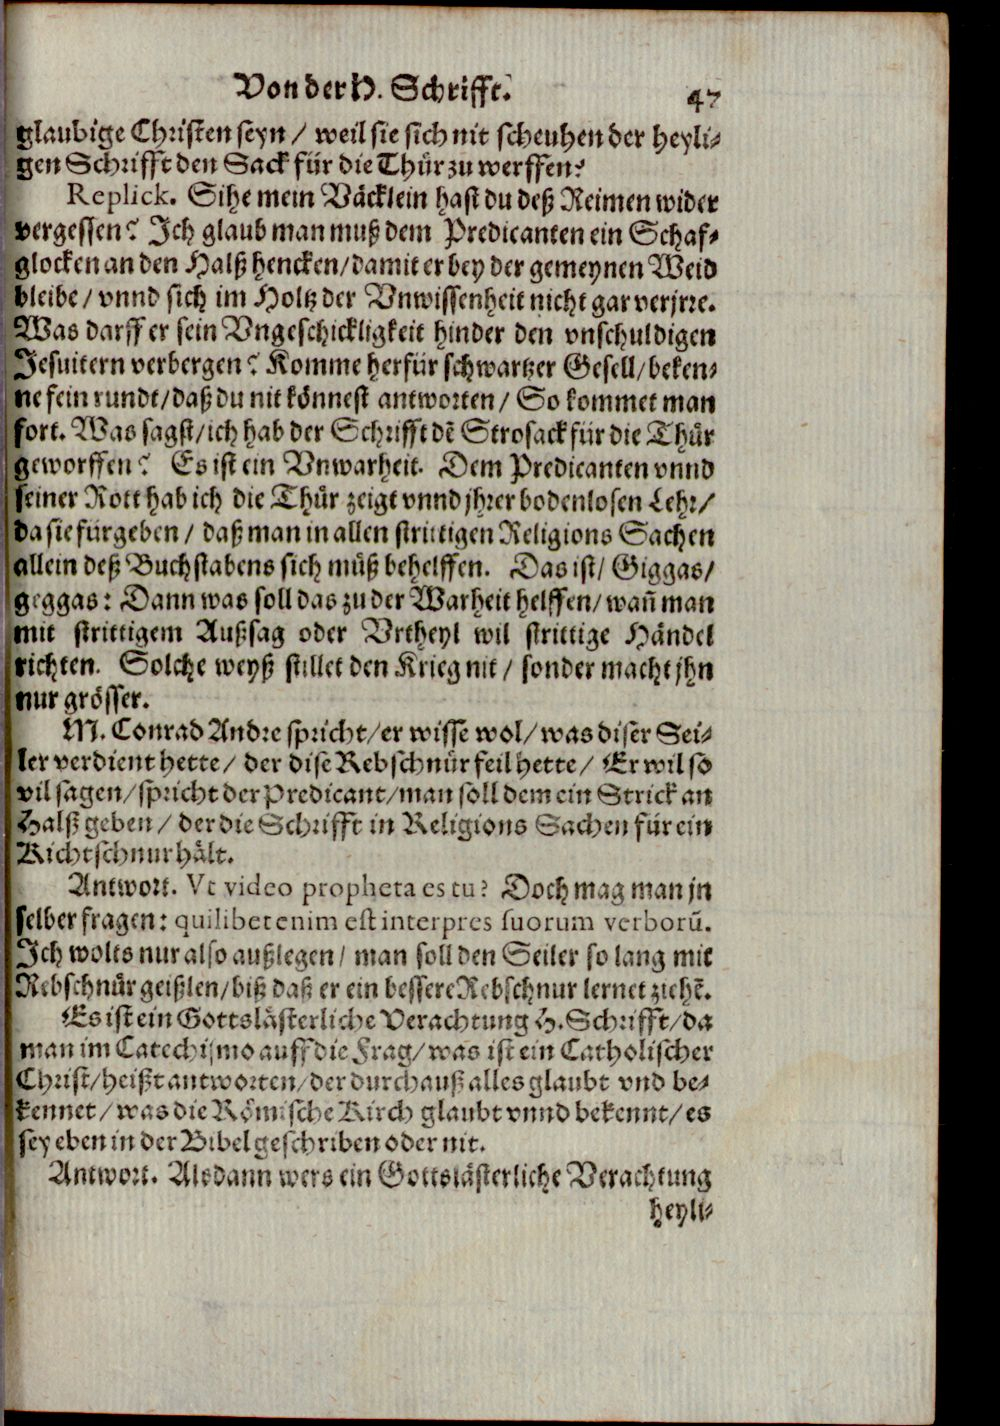 Von der H. Schrifft. 47
glaubige Christen seyn / weil sie sich nit scheuhen der heyli-
gen Schrifft den Sack für die Thür zu werffen?
Replick. Sihe mein Väcklein hast du deß Reimen wider
vergessen? Ich glaub man muß dem Predicanten ein Schaf-
glocken an den Halß hencken/damit er bey der gemeynen Weid
bleibe / vnnd sich im Holtz der Vnwissenheit nicht gar verjrre.
Was darff er sein Vngeschickligkeit hinder den vnschuldigen
Jesuitern verbergen? Komme herfür schwartzer Gesell/beken-
ne fein rundt/daß du nit könnest antworten / So kommet man
fort. Was sagst/ich hab der Schrifft dẽ Strosack für die Thür
geworffen? Es ist ein Vnwarheit. Dem Predicanten vnnd
seiner Rott hab ich die Thür zeigt vnnd jhrer bodenlosen Lehr/
da sie fürgeben / daß man in allen strittigen Religions Sachen
allein deß Buchstabens sich müß behelffen. Das ist/ Giggas/
geggas: Dann was soll das zu der Warheit helffen/wañ man
mit strittigem Außsag oder Vrtheyl wil strittige Händel
richten. Solche weyß stillet den Krieg nit / sonder macht jhn
nur grösser.
M. Conrad Andre spricht/er wisse wol/was diser Sei-
ler verdient hette/ der dise Rebschnür feil hette/ Er wil so
vil sagen/spricht der Predicant/man soll dem ein Strick an
Halß geben / der die Schrifft in Religions Sachen für ein
Richtschnur hält.
Antwort. Vt video propheta es tu? Doch mag man jn
selber fragen: quilibet enim est interpres suorum verborũ.
Ich wolts nur also außlegen / man soll den Seiler so lang mit
Rebschnür geißlen/biß daß er ein bessere Rebschnur lernet ziehẽ.
Es ist ein Gottslästerliche Verachtung H. Schrifft/da
man im Catechismo auff die Frag/was ist ein Catholischer
Christ/heißt antworten/der durchauß alles glaubt vnd be-
kennet/was die Römische Kirch glaubt vnnd bekennt/es
sey eben in der Bibel geschriben oder nit.
Antwort. Alsdann wers ein Gottslästerliche Verachtung
heyli-